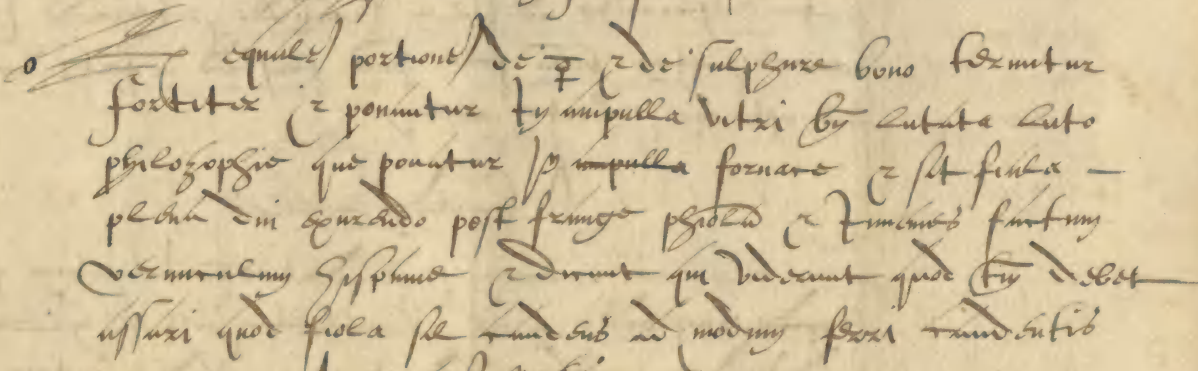 o equales portiones de ☿ & de sulphure bono terantur
fortiter & ponantur in ampulla vitri bn̄ lutata luto
philozophie que ponatur in ampulla fornace & sit fiala
plena diu exurendo post frange phiolā & inuenies factum
vermiculum hispanie & dicunt qui viderunt quod tm̄ debet
assari quod fiola sit candens ad modum ferri candentis